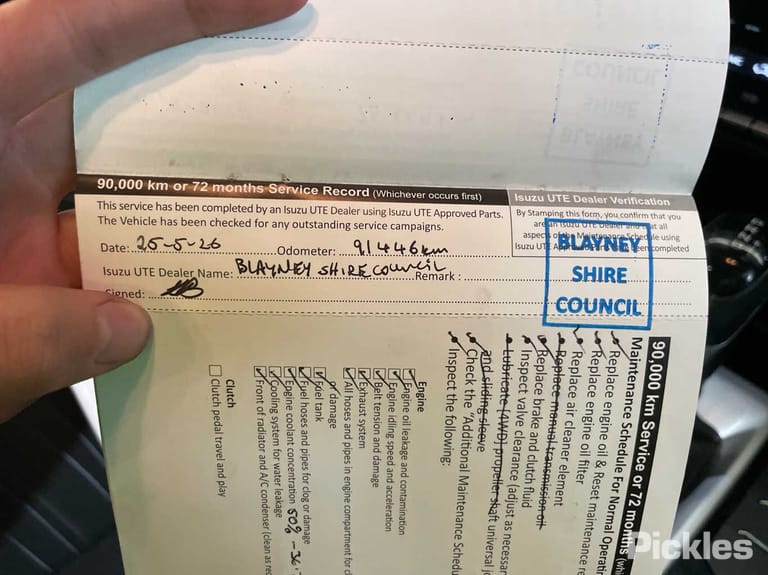 90,000 km or 72 months Service Record (Whichever occurs first)
This service has been completed by an Isuzu UTE Dealer using Isuzu UTE Approved Parts.
The Vehicle has been checked for any outstanding service campaigns.
Date: 25-5-26 Odometer: 91446km
Isuzu UTE Dealer Name: BLAYNEY SHIRE COUNCIL Remark :
Signed:
Isuzu UTE Dealer Verification
By Stamping this form, you confirm that you
are an Isuzu UTE Dealer and that all
aspects of the Maintenance Schedule using
Isuzu UTE completed
BLAYNEY
SHIRE
COUNCIL
90,000 km Service or 72 months
Maintenance Schedule For Normal
Replace engine oil & Reset maintenance
Replace engine oil filter
Replace air cleaner element
Replace manual transmission oil
Replace brake and clutch fluid
Inspect valve clearance (adjust as
Lubricate (4WD) propeller shaft universal
and sliding sleeve
Check the "Additional Maintenance
Inspect the following:
Engine
Engine oil leakage and contamination
Engine idling speed and acceleration
Belt tension and damage
Exhaust system
All hoses and pipes in engine compartment for
or damage
Fuel tank
Fuel hoses and pipes for clog or damage
Engine coolant concentration 50% -36
Cooling system for water leakage
Front of radiator and A/C condenser (clean as
Clutch
Clutch pedal travel and play
Pickles